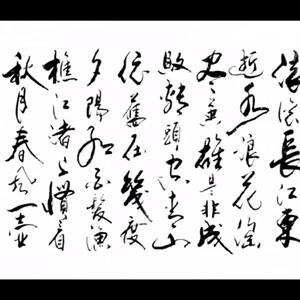 滚滚長江東
逝水浪花淘
尽英雄是非成
敗轉頭空青山
依舊在幾度
夕陽紅白髮漁
樵江渚上慣看
秋月春風一壺